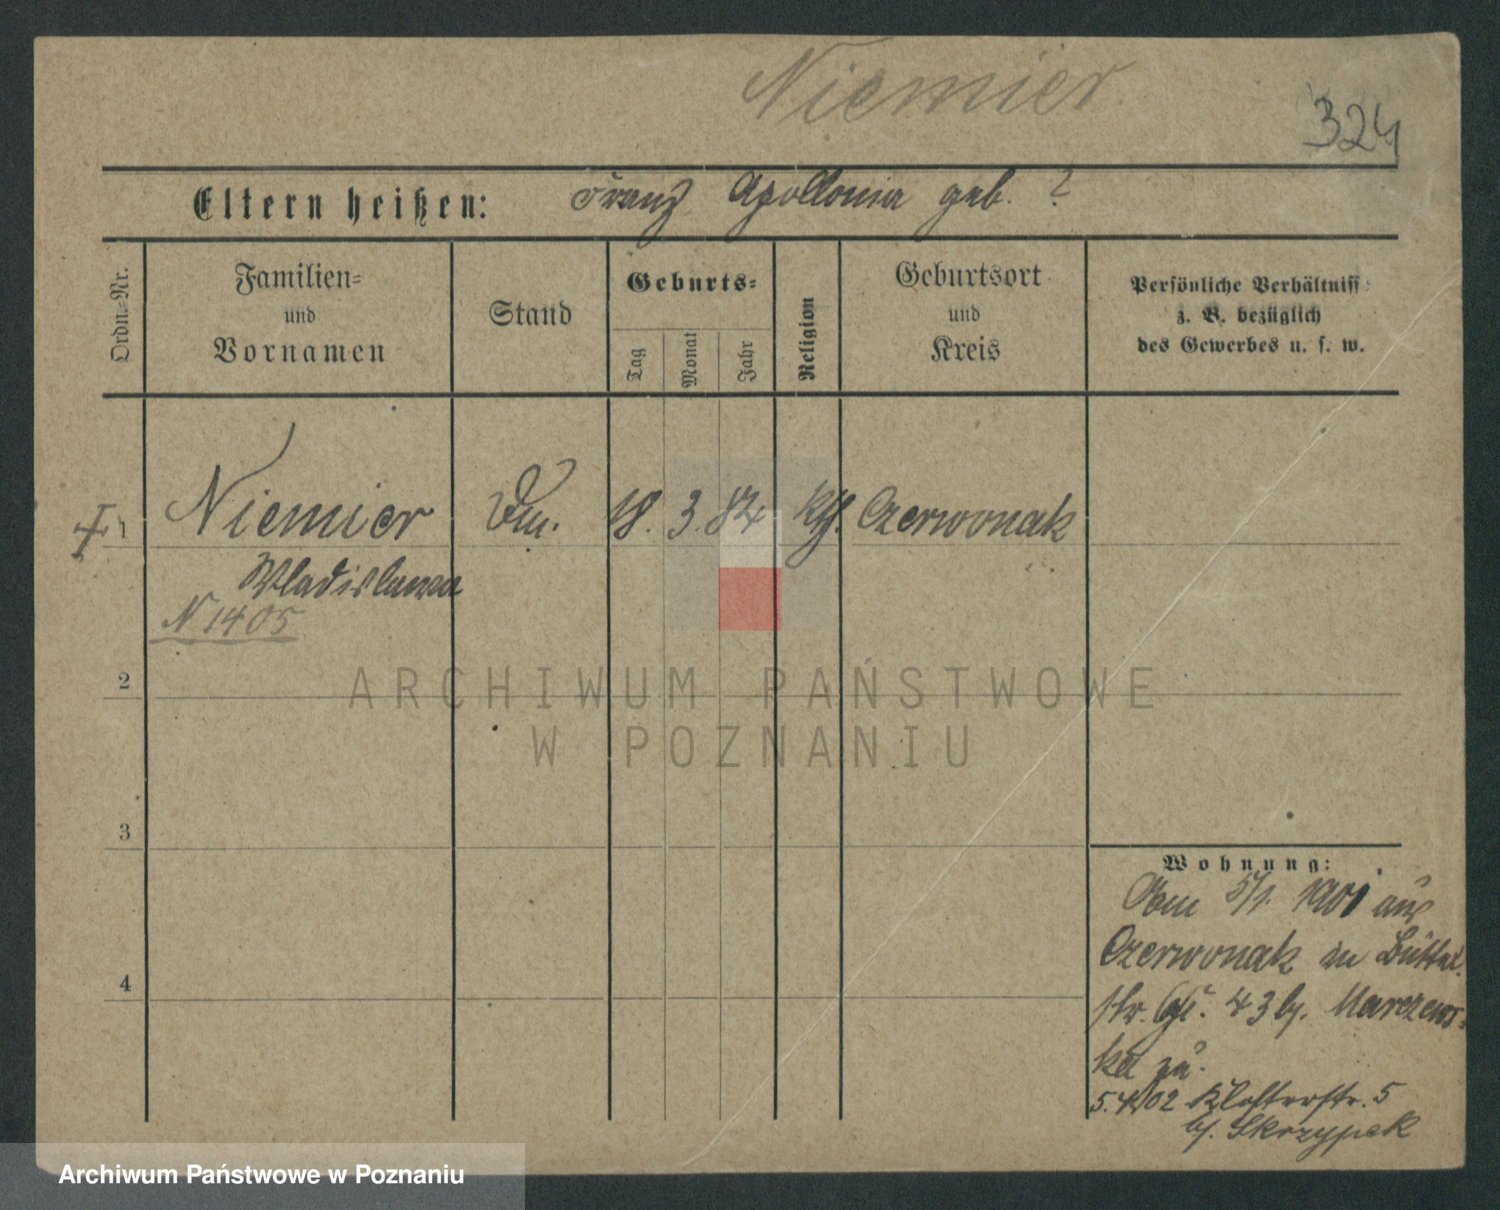 Niemier
324
Eltern heißen: Franz Apollonia geb. ?
Ordn.-Nr.
Familien-
und
Vornamen
Stand
Geburts-
Tag
Monat
Jahr
Religion
Geburtsort
und
Kreis
Persönliche Verhältniss
z. B. bezüglich
des Gewerbes u. s. w.
1 Niemier 18. 3. 84 kth. Czerwonak
Wladislawa
N 1405
2
ARCHIWUM PAŃSTWOWE
W POZNANIU
3
4
Wohnung:
5/1. 1901 aus
Czerwonak in Büttel
str. 43 bj. Marczews-
ka zu.
5.4/02 Klosterstr. 5
bj. Skrzypek
Archiwum Państwowe w Poznaniu